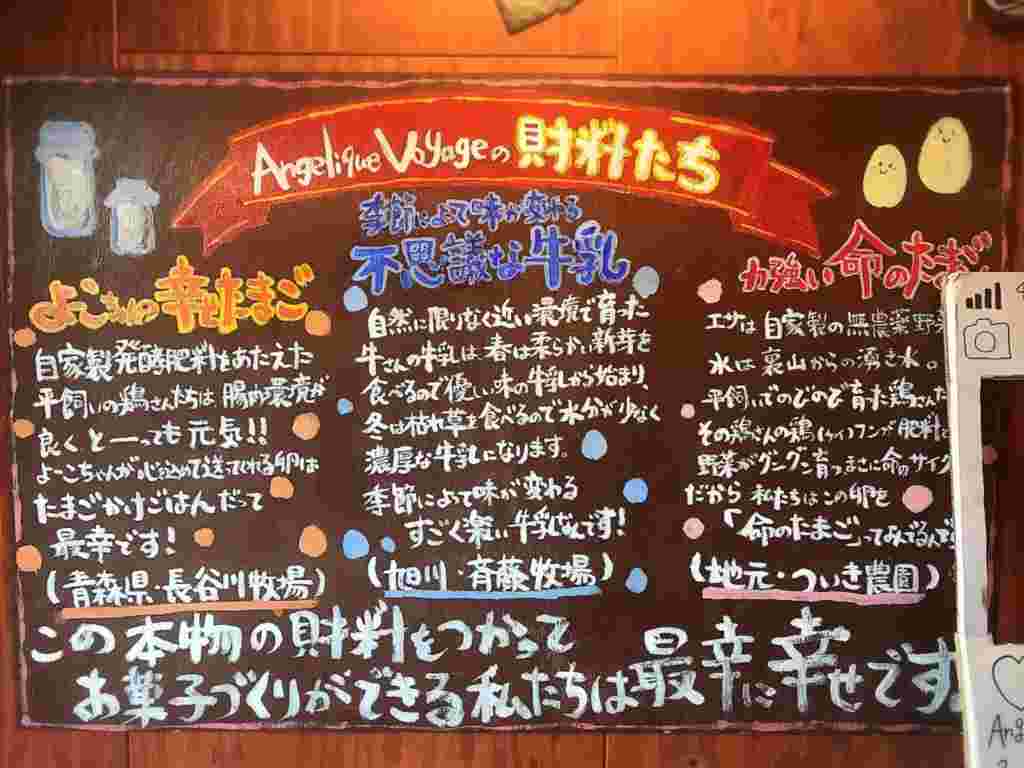 Angelique Voyageの財料たち
よこちゃんの幸せたまご
自家製発酵肥料をあたえた
平飼いの鶏さんたちは腸内環境が
良くと一っても元気!!
よこちゃんが心を込めて送ってくれる卵は
たまごかけごはんだって
最幸です!
(青森県・長谷川牧場)
季節によって味が変わる
不思議な牛乳
自然に限りなく近い環境で育った
牛さんの牛乳は、春は柔らかい新芽を
食べるので優しい味の牛乳から始まり、
冬は枯れ草を食べるので水分が少なく
濃厚な牛乳になります。
季節によって味が変わる
すごく楽しい牛乳なんです!
(旭川・斉藤牧場)
力強い命のたまご
エサは自家製の無農薬野菜
水は裏山からの湧き水。
平飼いでのびのび育った鶏さんた
その鶏さんの鶏(ケイ)フンが肥料と
野菜がグングン育つまさに命のサイク
だから 私たちはこの卵を
「命のたまご」ってよんでるんで
(地元・ついき農園)
この本物の財料をつかって
お菓子づくりができる私たちは最幸に幸せです。
Ang